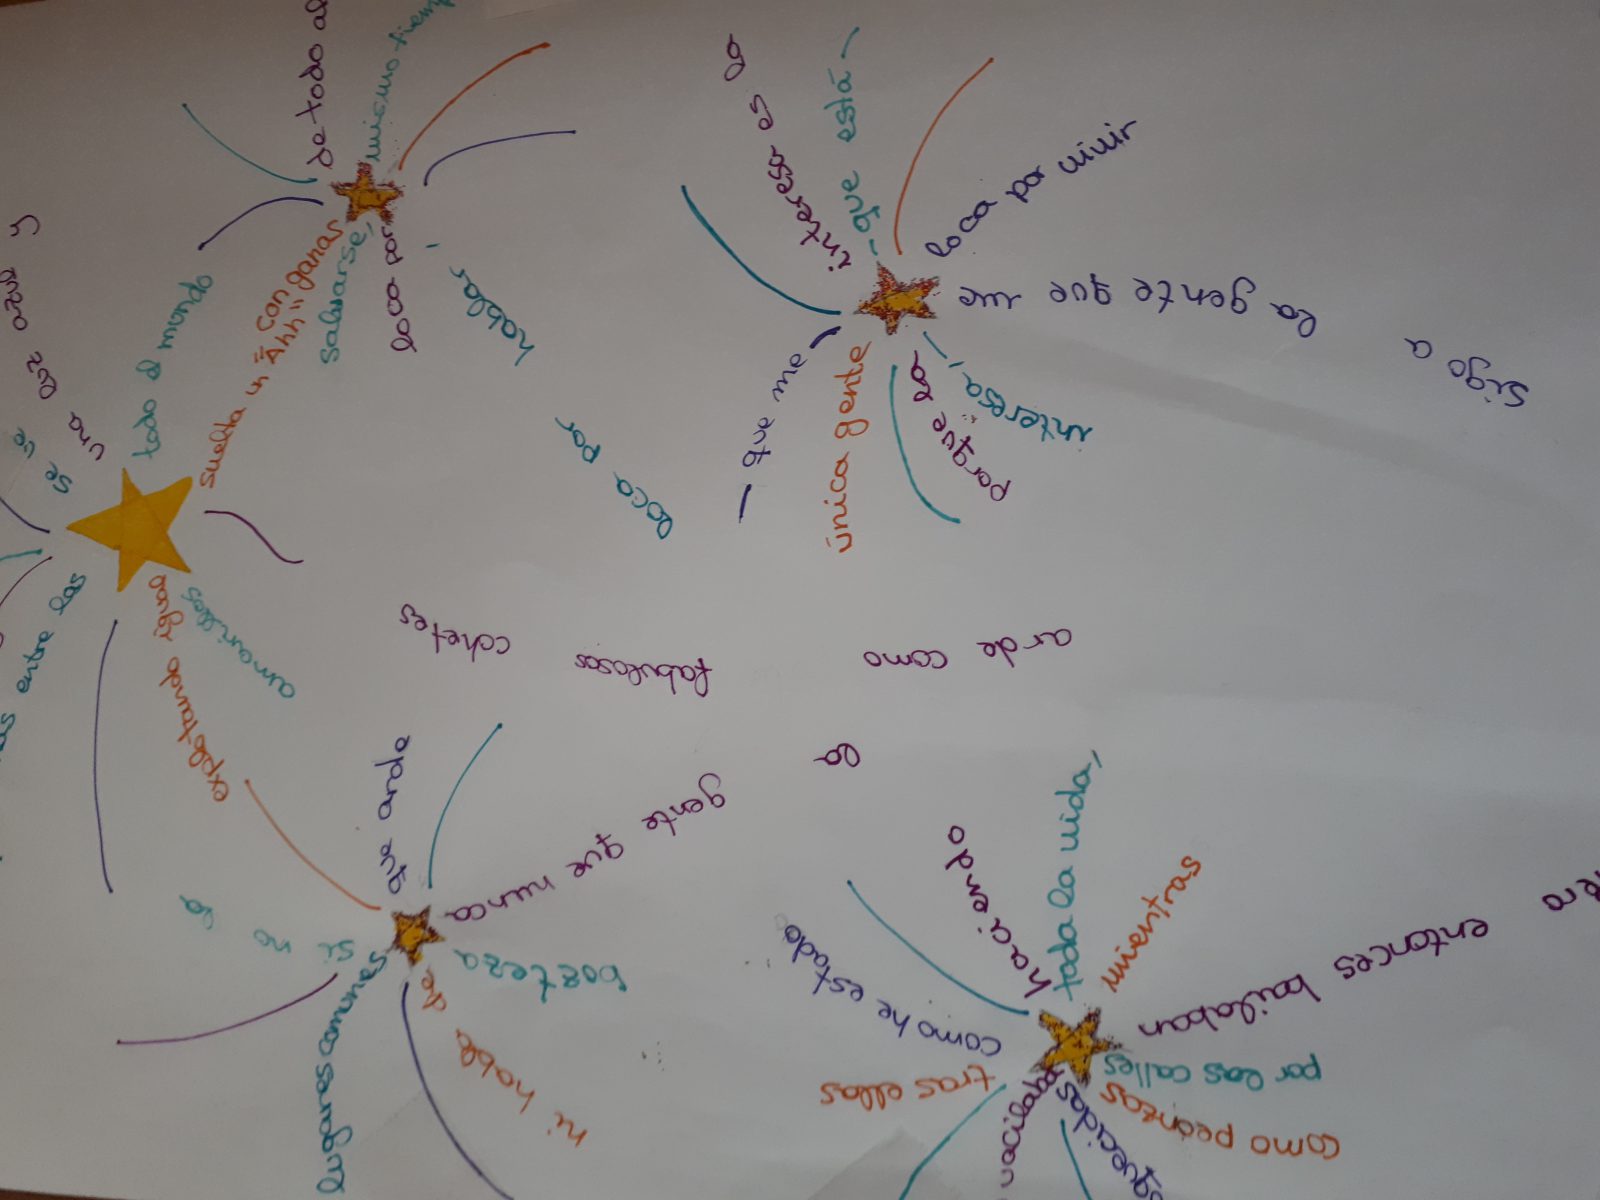 entonces bailaban
por las calles
como peonzas
tras ellos
como he estado
haciendo
toda la vida,
mientras
sigo a
la gente que me
interesa,
porque la
única gente
que me
interesa es la
que está
loca por vivir
loca por
hablar,
loca por
salvarse,
con ganas
de todo al
mismo tiemp
la
gente que nunca
bosteza
ni habla de
lugares comunes
si no
que arde
arde como
fabulosos
cohetes
amarillos
explotando
igual
entre las
se ve
una luz azul y
todo el mundo
suelta un "Ahh"